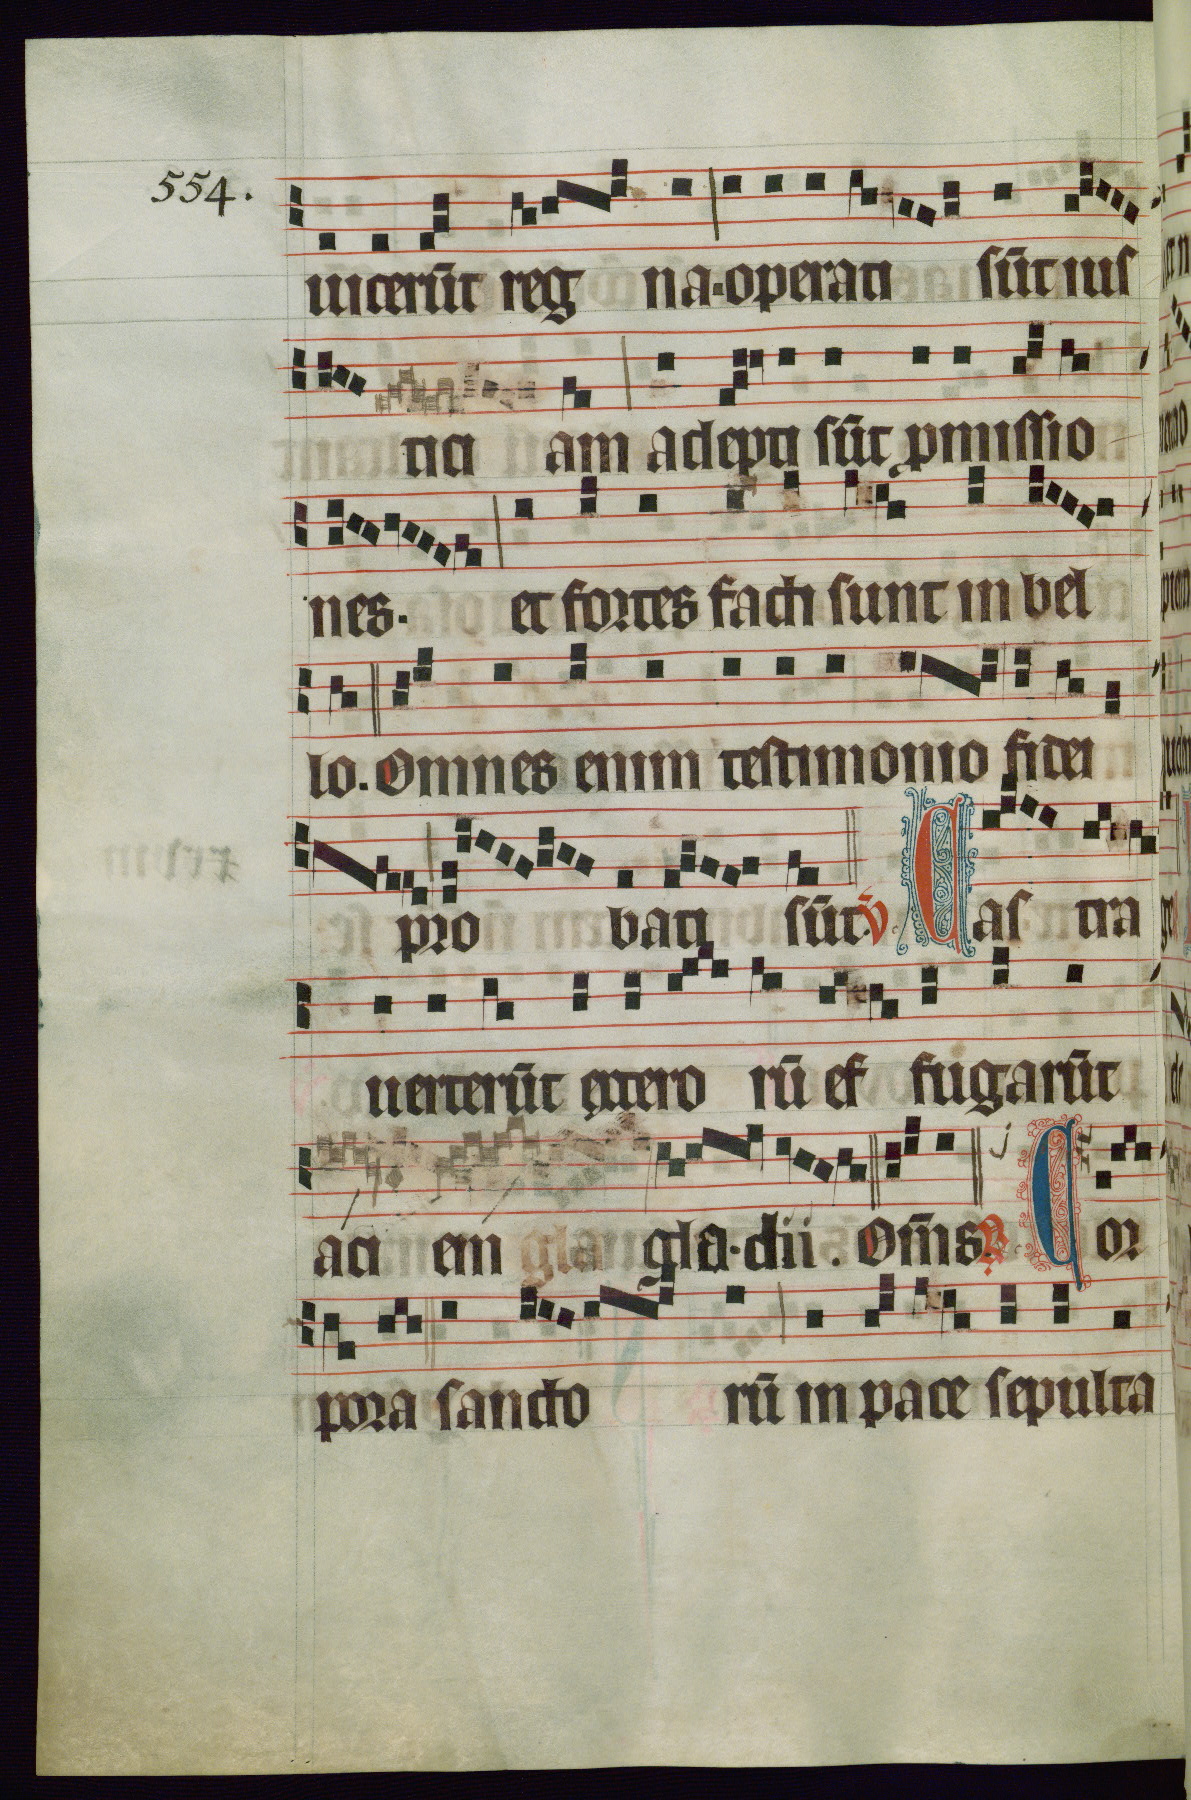 554.
uicerūt reg na·operati sūt ius
tici am adepti sūt ꝓmissio
nes· et fortes facti sunt in bel
lo. Omnes enim testimonio fidei
pro bati sūt. ℣. Cas tra
uerterūt extero rū et fugarūt
aci em gla gla·dii. Om̄s ℟. Cor
pora sancto rū in pace sepulta